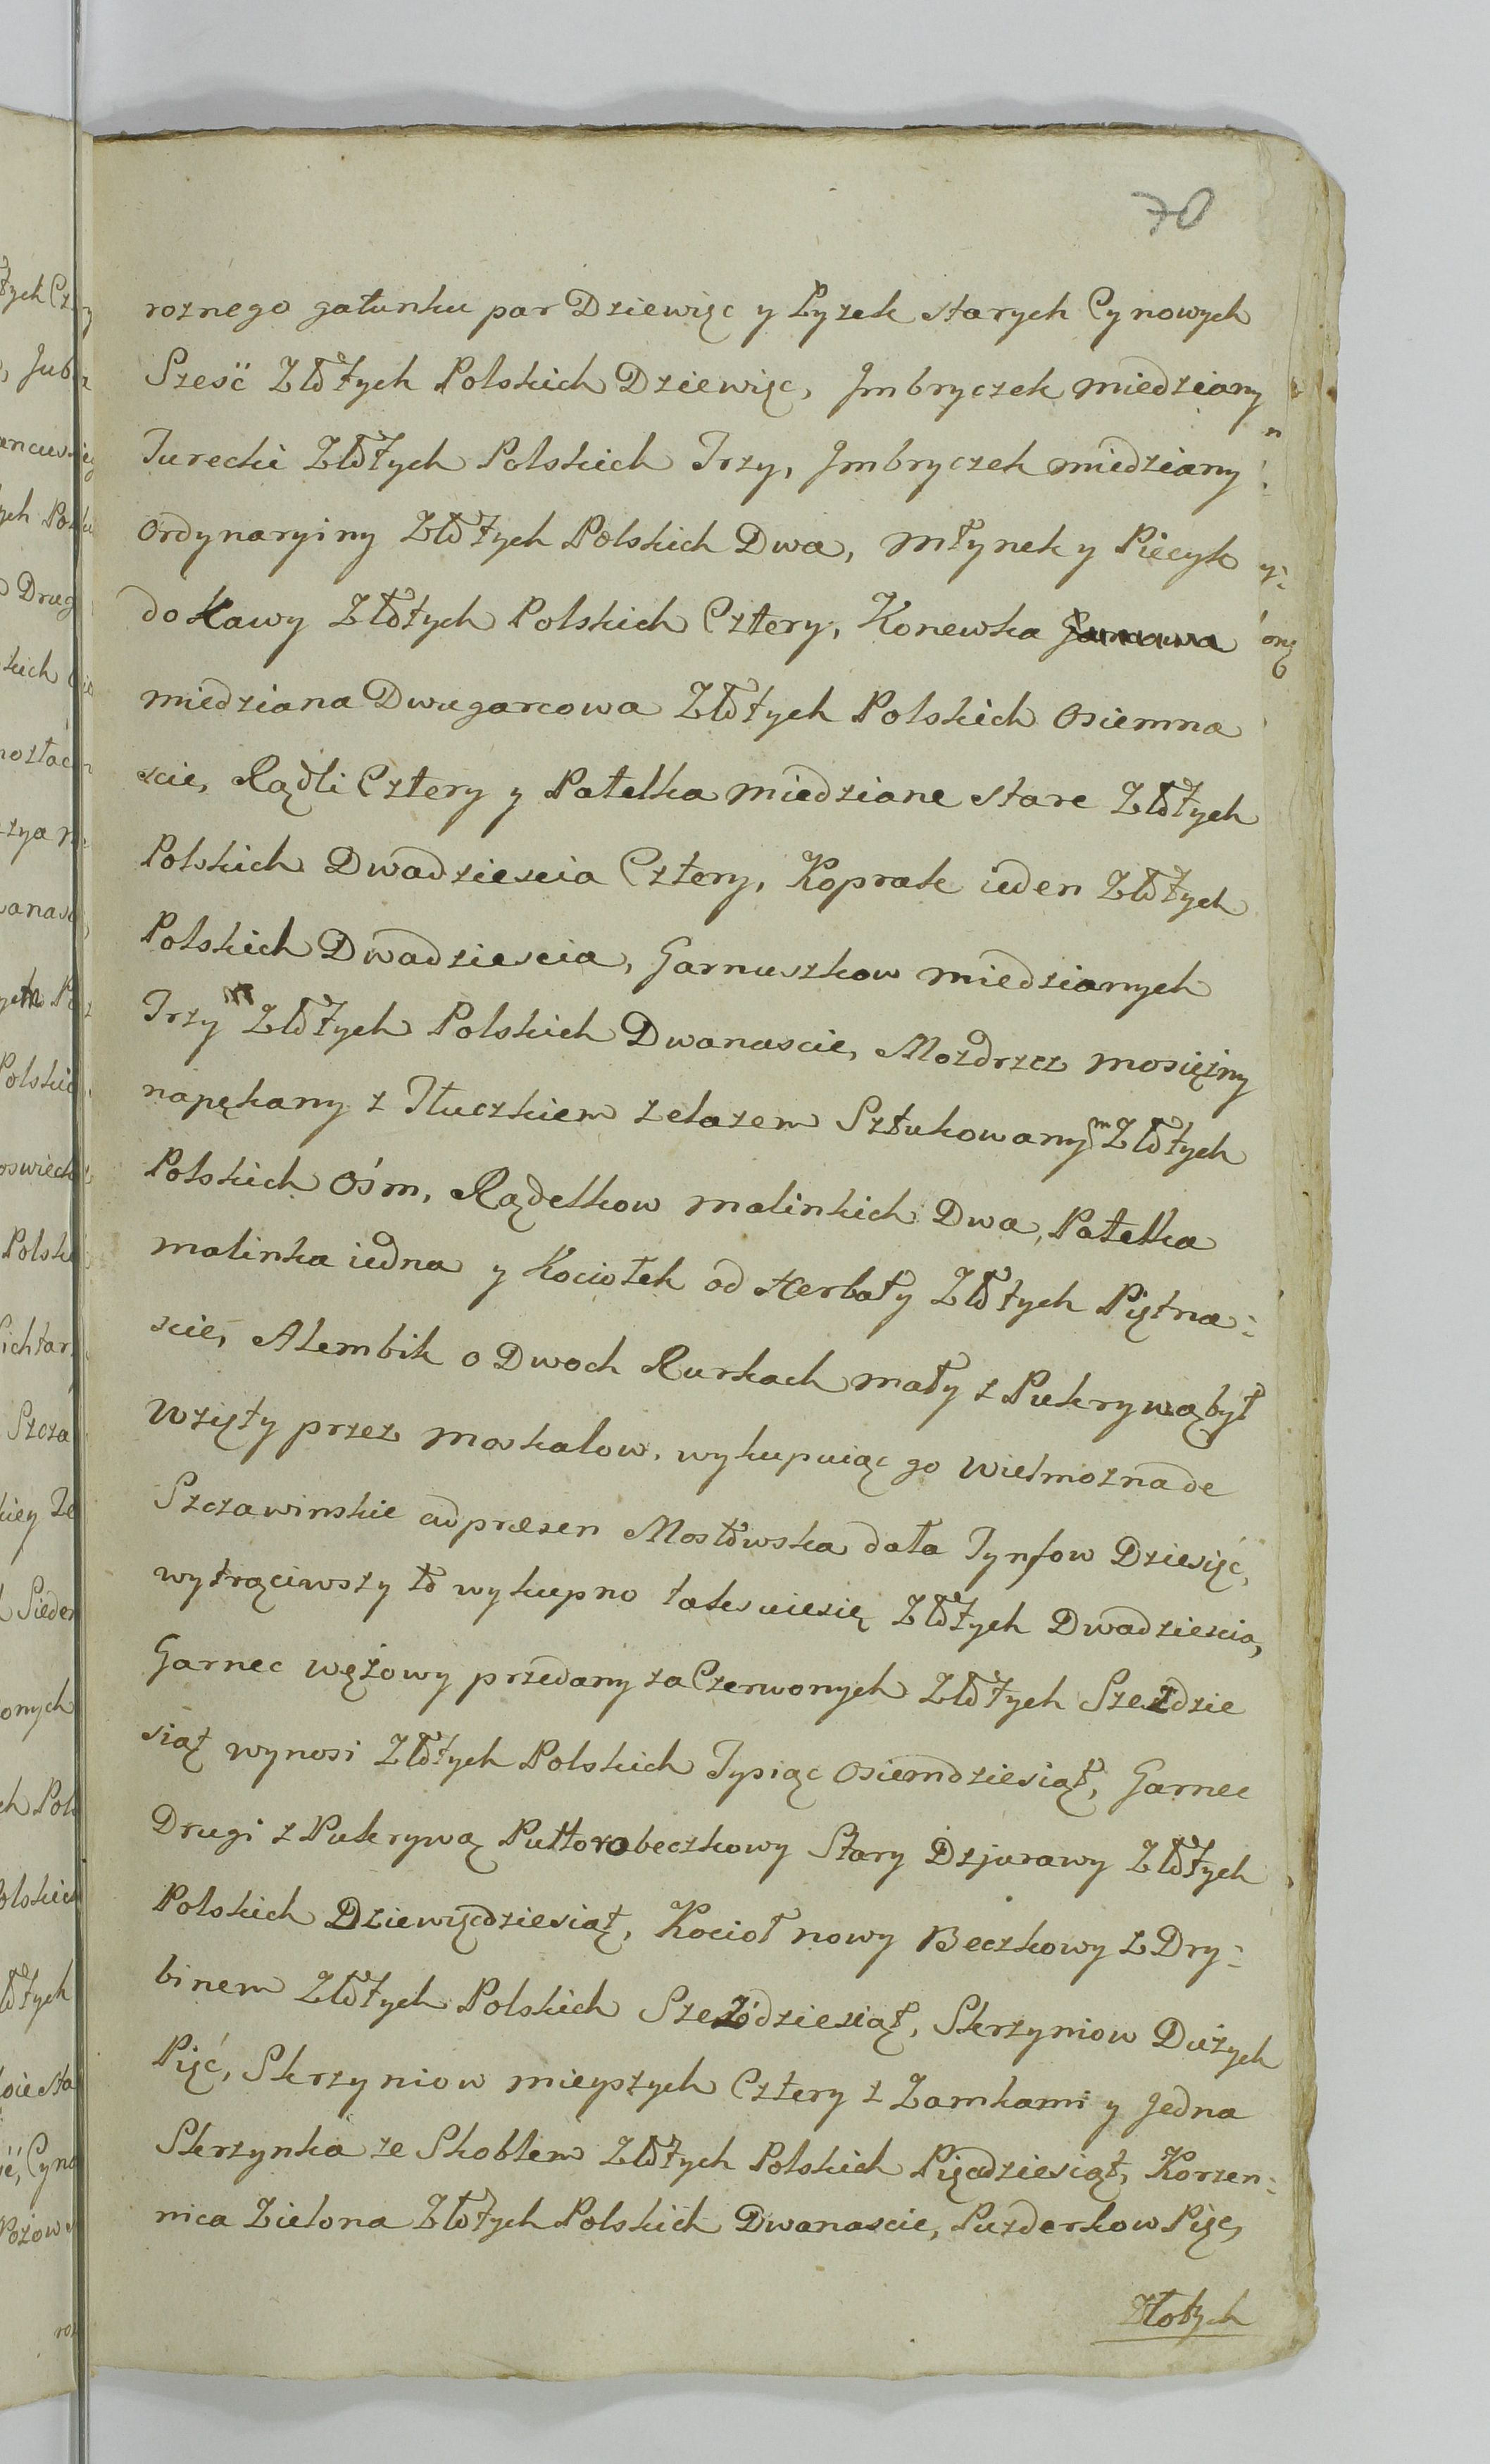 70
roznego gatunku par Dziewięc y Łyzek starych Cynowych
Szesć Złotych Polskich Dziewięc, Jmbryczek miedziany
Turecki Złotych Polskich Trzy, Jmbryczek miedziany
Ordynaryiny Złotych Polskich Dwa, Młynek y Piecyk
do Kawy Złotych Polskich Cztery, Konewka
miedziana Dwugarcowa Złotych Polskich Osiemna
scie, Rądli Cztery y Patelka miedziane stare Złotych
Polskich Dwadziescia Cztery, Koprak ieden Złotych
Polskich Dwadziescia, Garnuszkow miedzianych
Trzy Złotych Polskich Dwanascie, Mozdrzez mosiężny
napękany z Tłuczkiem zelazem Sztukowanym Złotych
Polskich Ośm, Rądelkow malinkich Dwa, Patelka
malinka iedna y Kociołek od Herbaty Złotych Piętna:
scie, Alembik o Dwoch Rurkach mały z Pukrywą był
Wzięty przez Moskalow, wykupuiąc go Wielmozna de
Szczawinskie adpræsen Mostowska dała Tynfow Dziesięć,
wytrąciwszy to wykupno taksuiesię Złotych Dwadziescia,
Garnec wężowy przedany za Czerwonych Złotych Szezdzie
siąt wynosi Złotych Polskich Tysiąc osiemdziesiąt, Garnec
Drugi z Pukrywą Puttorobeczkowy Stary Dzjurawy Złotych
Polskich Dziewięcdziesiąt, Kocioł nowy Beczkowy z Dry:
binem Złotych Polskich Szeździesiąt, Skrzyniow Dużych
Pięć, Skrzyniow mieyszych Cztery z Zamkami y Jedna
Skrzynka ze Skoblem Złotych Polskich Pięcdziesiąt, Korzen:
nica Zielona Złotych Polskich Dwanascie, Puzderkow Pięc,
Złotych